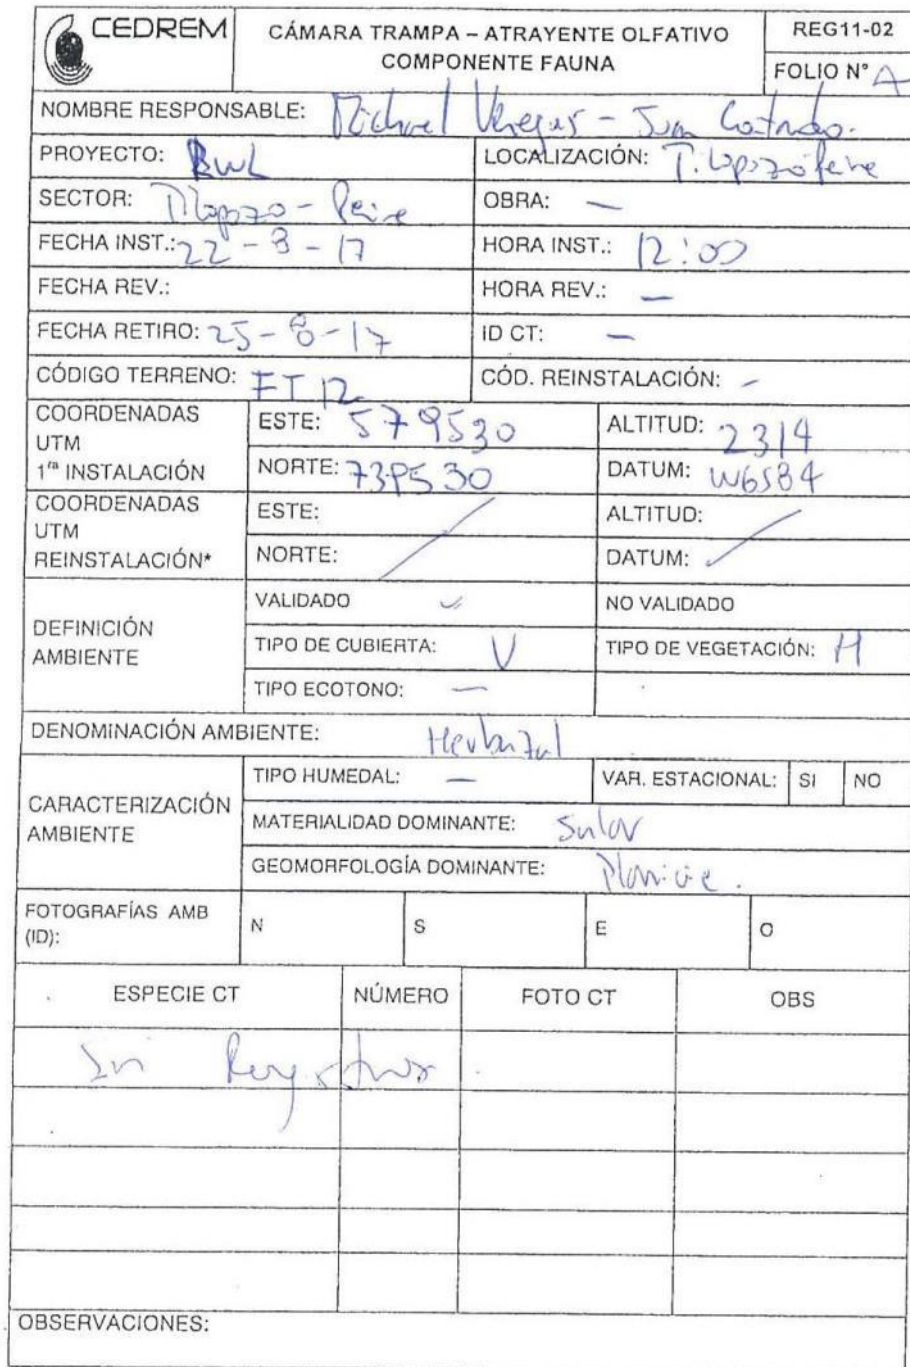 CEDREM
CÁMARA TRAMPA – ATRAYENTE OLFATIVO
COMPONENTE FAUNA
REG11-02
FOLIO N° A
NOMBRE RESPONSABLE: Michael Venegas - Juan
PROYECTO: BWL LOCALIZACIÓN:
SECTOR: Tilopozo - Peine OBRA: —
FECHA INST.: 22 - 8 - 17 HORA INST.: 12:00
FECHA REV.: HORA REV.: —
FECHA RETIRO: 25 - 8 - 17 ID CT: —
CÓDIGO TERRENO: FT 12 CÓD. REINSTALACIÓN: -
COORDENADAS UTM 1ra INSTALACIÓN
ESTE: 579530 ALTITUD: 2314
NORTE: DATUM: WGS84
COORDENADAS UTM REINSTALACIÓN*
ESTE: / ALTITUD: /
NORTE: DATUM:
DEFINICIÓN AMBIENTE
VALIDADO ✓ NO VALIDADO
TIPO DE CUBIERTA: V TIPO DE VEGETACIÓN: H
TIPO ECOTONO: —
DENOMINACIÓN AMBIENTE: Herbazal
CARACTERIZACIÓN AMBIENTE
TIPO HUMEDAL: — VAR. ESTACIONAL: SI NO
MATERIALIDAD DOMINANTE: Salar
GEOMORFOLOGÍA DOMINANTE: Planicie.
FOTOGRAFÍAS AMB (ID): N S E O
ESPECIE CT NÚMERO FOTO CT OBS
Sin Registros.
OBSERVACIONES: